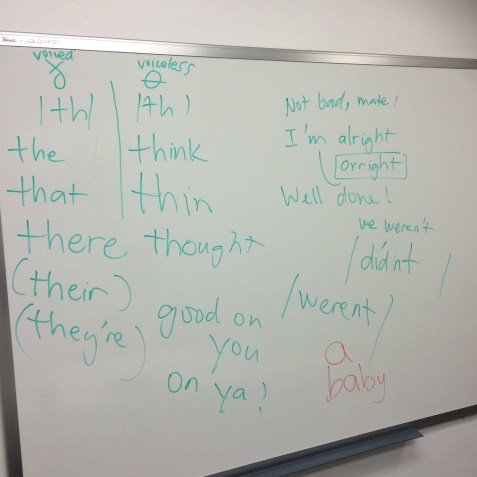 voiced
voiceless
ŏ
θ
|th|
|th|
the
think
that
thin
there
thought
(their)
(they're)
good on
you
on ya!
Not bad, mate!
I'm alright
orright
Well done!
we weren't
/didn't /
/werent /
a
baby